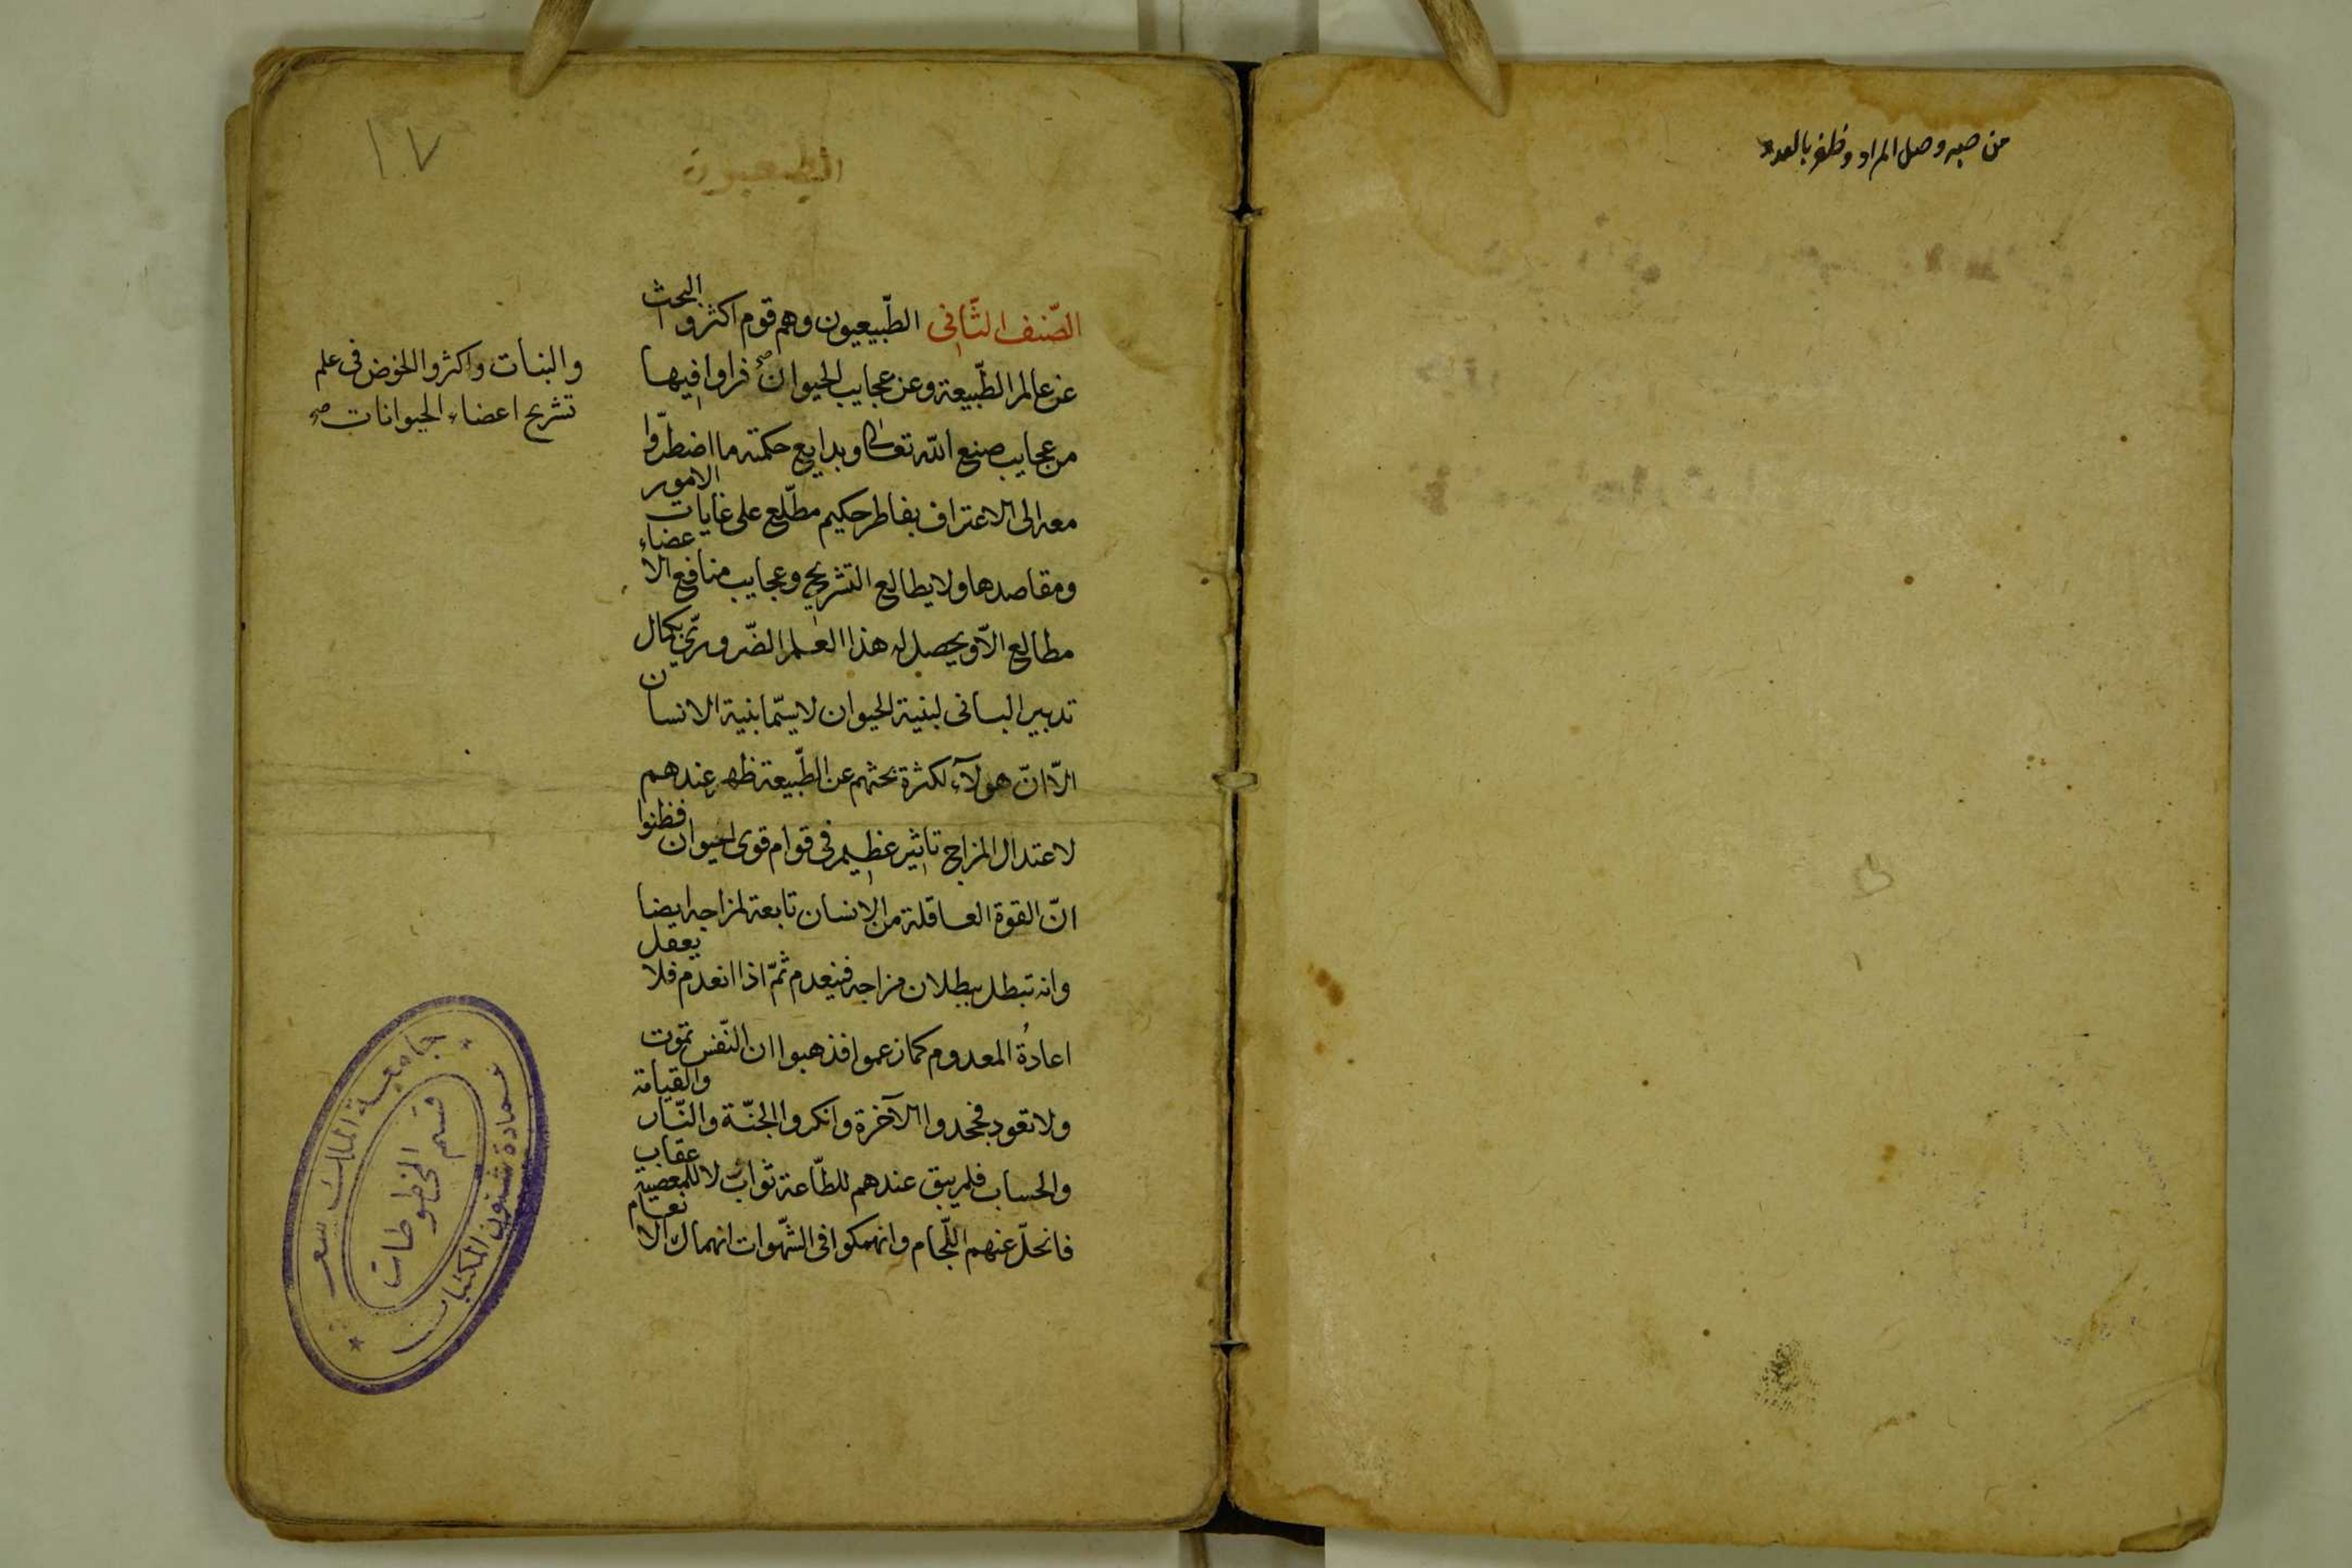 من صبر وصل المراد وظفر بالعدو
١٠٧
الطبيعيون
الصّنف الثّانى الطّبيعيون وهم قوم اكثروا البحث
عن عالم الطّبيعة وعن عجايب الحيوان صح فراوا فيها
والنبات واكثروا الخوض فى علم
تشريح اعضاء الحيوانات صح
من عجايب صنع الله تعالى وبدايع حكمته ما اضطرّوا
معه الى الاعتراف بفاطر حكيم مطّلع على غايات الامور
ومقاصدها ولا يطالع التشريح وعجايب منافع الاعضاء
مطالع الاّ ويحصل له هذا العلم الضّرورىّ بكمال
تدبير البانى لبنية الحيوان لا سيّما بنية الانسان
الاّ انّ هولآء لكثرة بحثهم عن الطّبيعة ظهر عندهم
لاعتدال المزاج تاثير عظيم فى قوام قوى الحيوان فظنوا
انّ القوة العاقلة من الانسان تابعة لمزاجه ايضا
وانه تبطل ببطلان مزاجه فينعدم ثمّ اذا انعدم فلا يعقل
اعادةُ المعدوم كما زعموا فذهبوا ان النّفس تموت
ولا تعود فجحدوا الآخرة وانكروا الجنّة والنّار والقيامة
والحساب فلم يبق عندهم للطّاعة ثوابٌ لا للمعصية عقاب
فانحلّ عنهم اللّجام وانهمكوا فى الشّهوات انهماك الانعام
جامعة الملك سعود
قسم
المخطوطات
عمادة شئون المكتبات